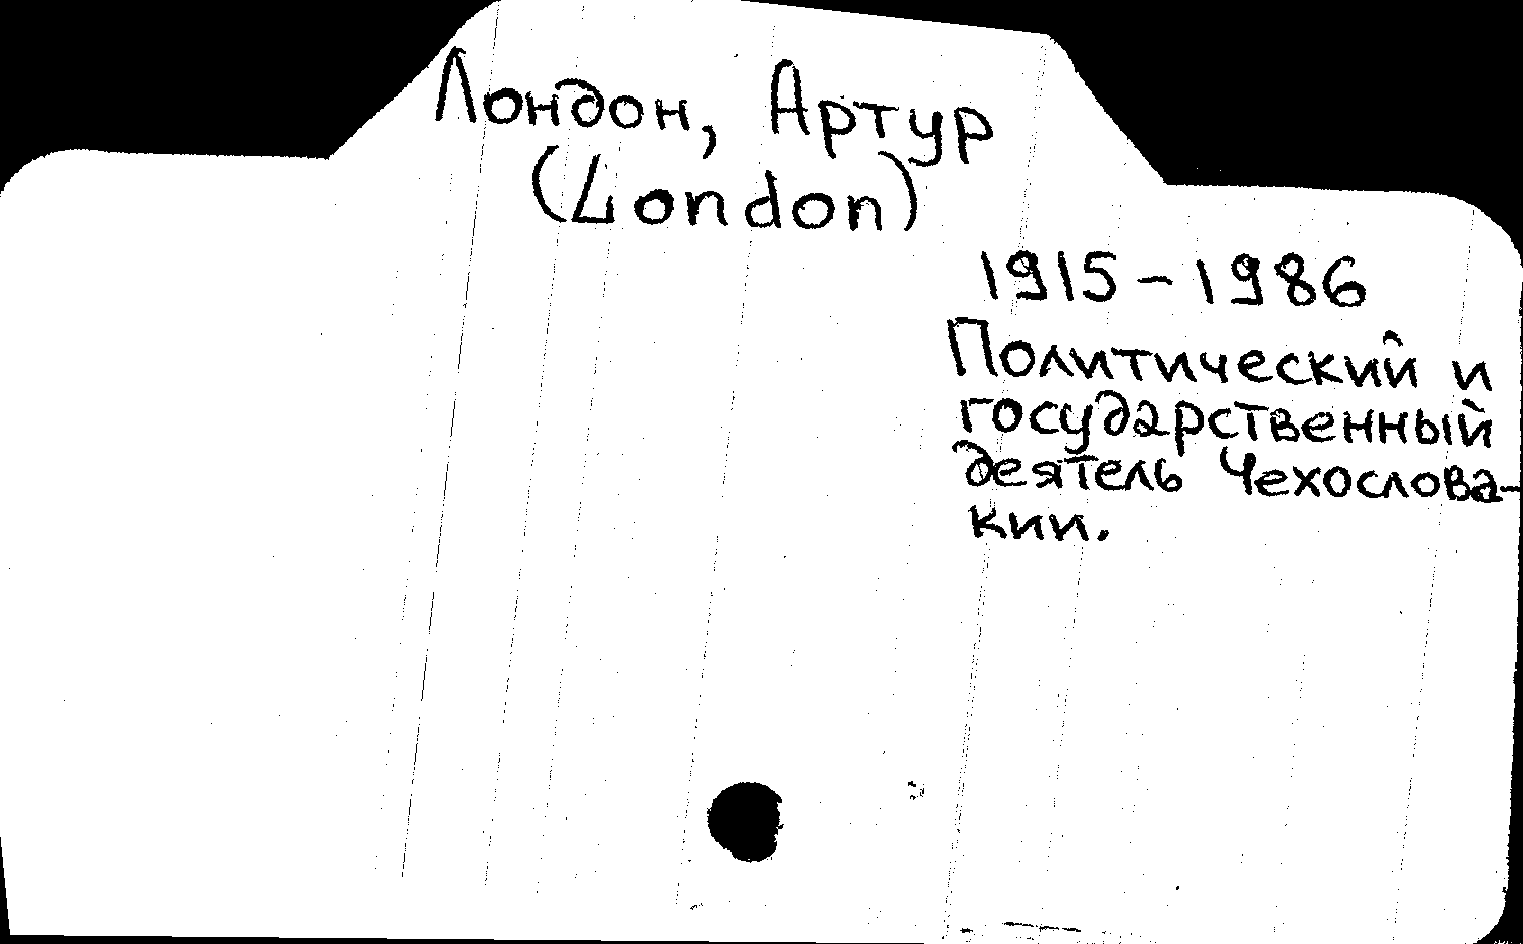 Лондон, Артур
(London)
1915-1986
Политический и
государственный
деятель Чехослова-
кии.